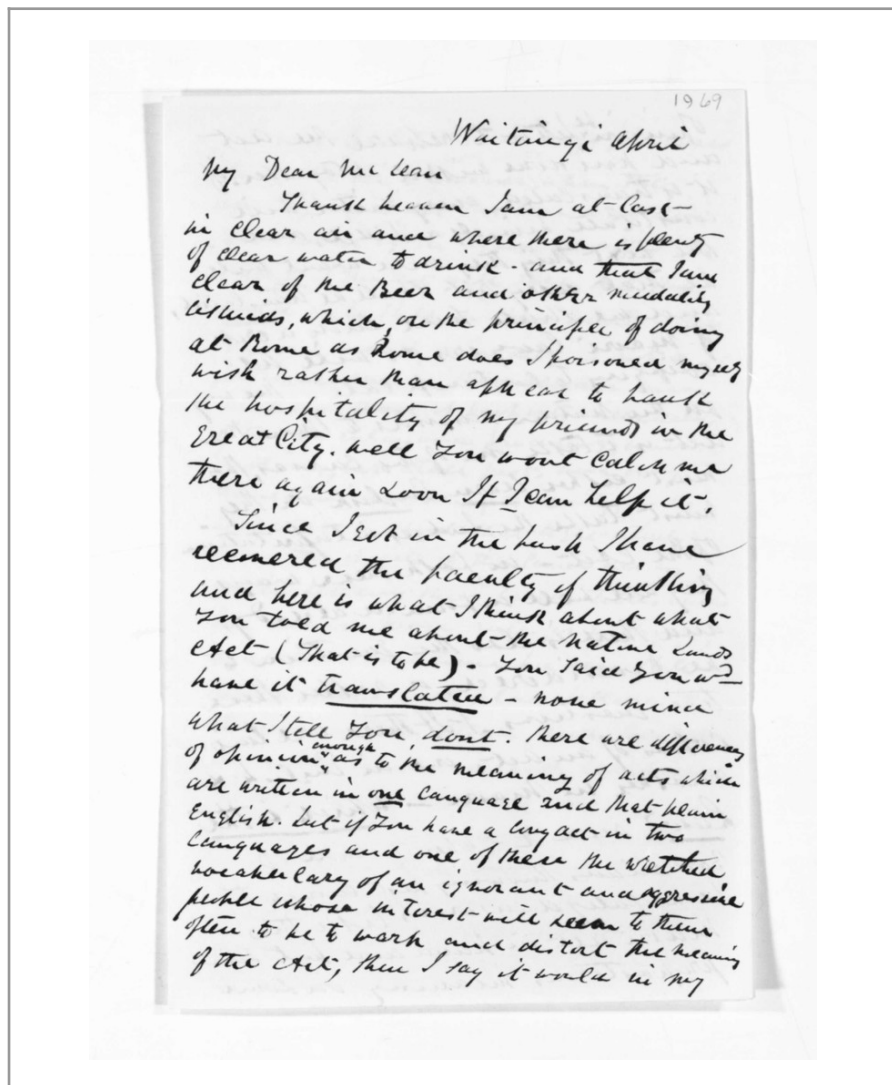 1869
Waitangi April
My Dear McLean
Thank heaven I am at last
in clear air and where there is plenty
of clear water to drink - and that I am
clear of the Beer and other
liquids, which, on the principle of doing
at Rome as Rome does I poisoned myself
with rather than appear to
the hospitality of my friends in the
Great City. well you wont catch me
there again soon If I can help it.
Since I got in the bush I have
recovered the faculty of thinking
and here is what I think about what
you told me about the Native Lands
Act (That is to be) - You said you wd
have it translated - now mind
what I tell you, dont. there are differences
of opinion enough as to the meaning of acts which
are written in one language and that plain
English. but if you have a long act in two
languages and one of these the wretched
vocabulary of an ignorant and aggressive
people whose interest will seem to them
often to be to warp and distort the meaning
of the Act, then I say it would in my